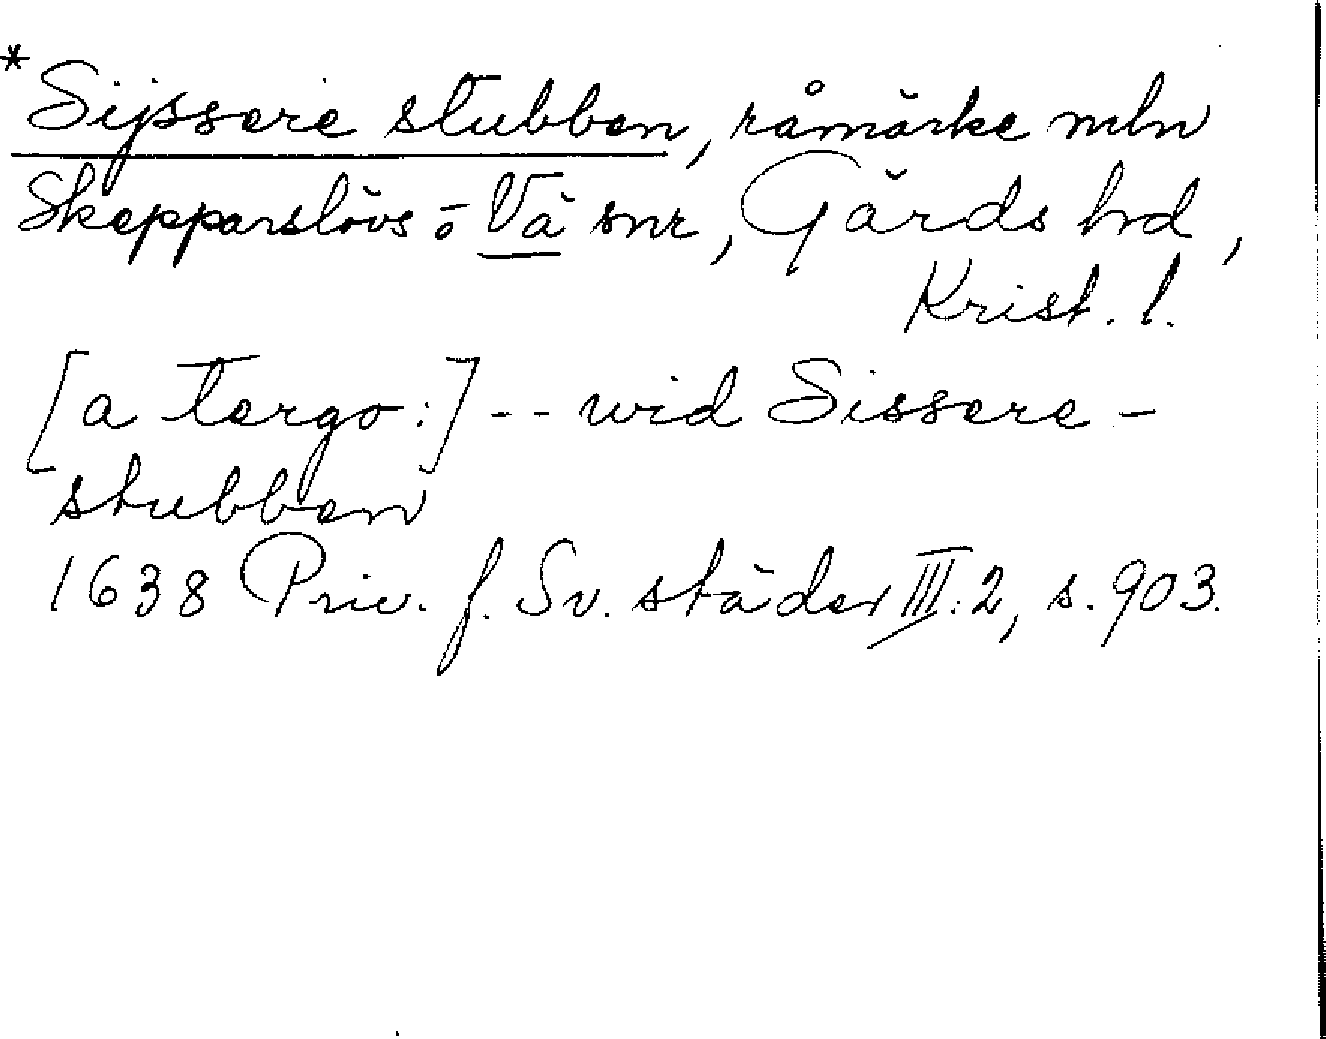 *Sijssere stubben, råmärke mln
Skepparslövs- o Vä snr, Gärds hd,
Krist. l.
[a tergo:] -- wid Sissere-
stubben
1638 Priv. f. Sv. städer III:2, s. 903.